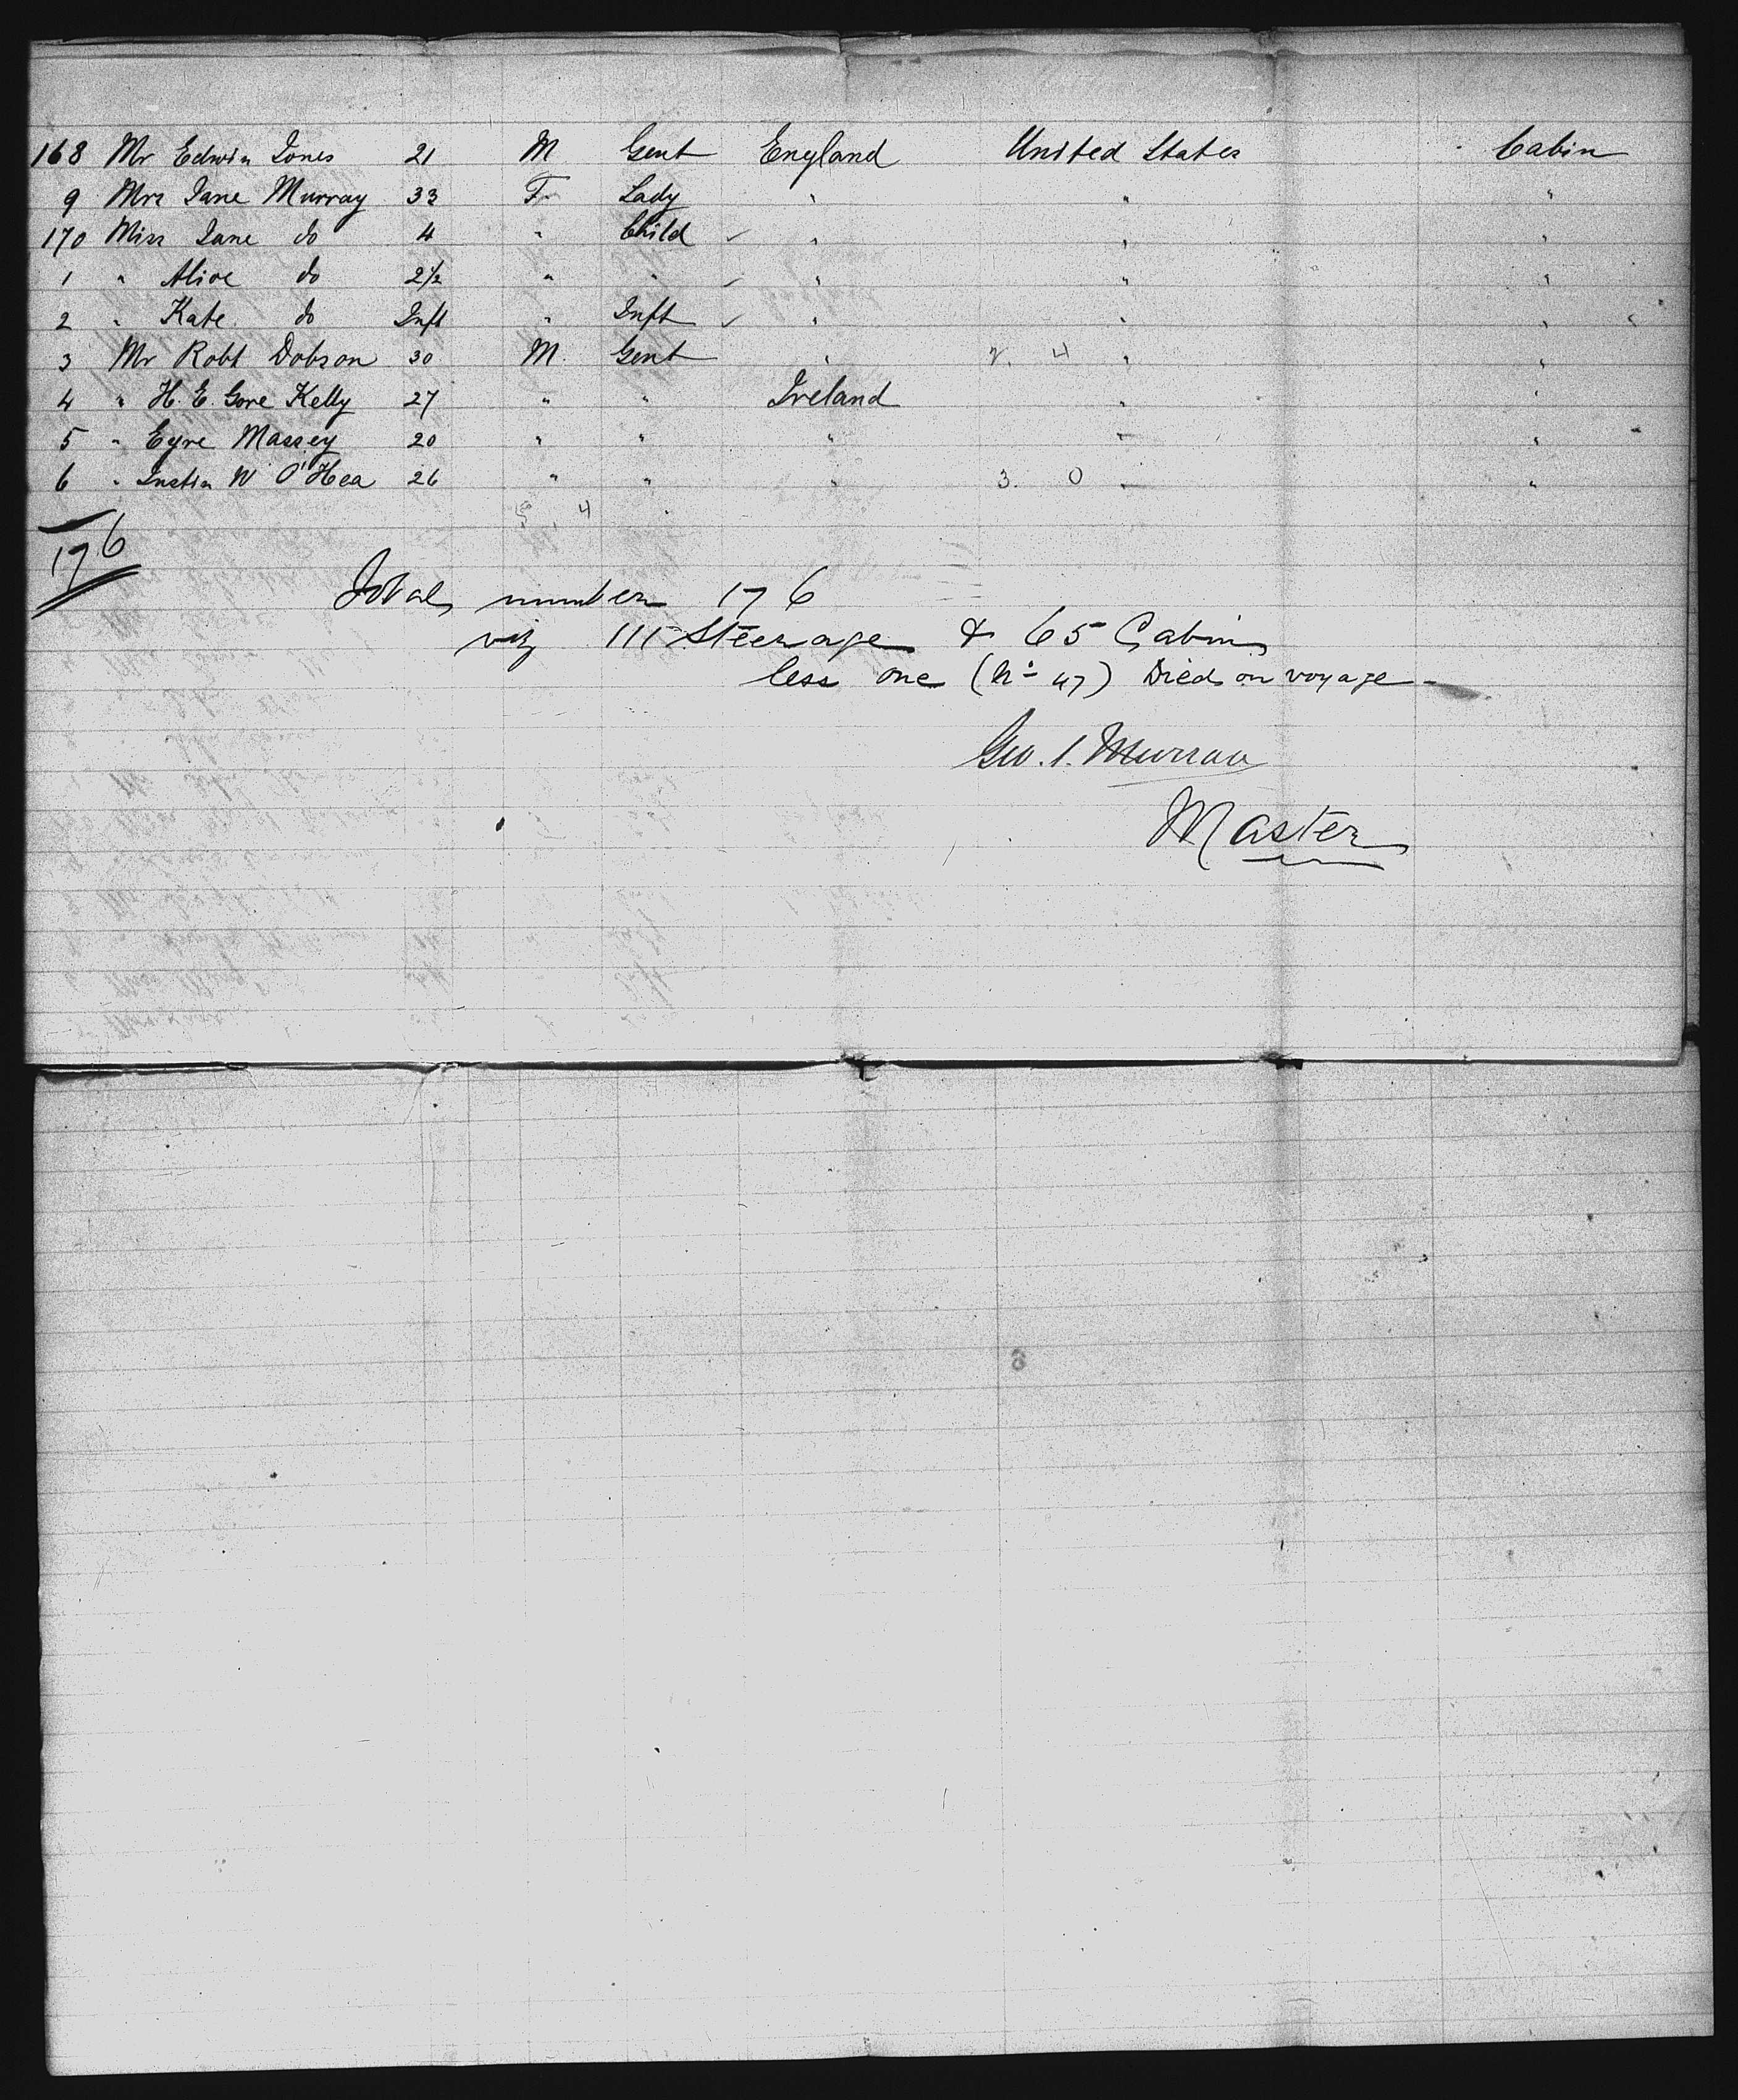 168 Mr Edwin Jones 21 M Gent England United States Cabin
9 Mrs Jane Murray 33 F Lady " " "
170 Miss Jane do 4 " Child " " "
1 " Alice do 2½ " " " " "
2 " Kate do Inft " Inft " " "
3 Mr Robt Dobson 30 M. Gent " 2. 4 " "
4 " H. E. Gore Kelly 27 " " Ireland " "
5 " Eyre Massey 20 " " " " "
6 " Justin W O'Hea 26 " " " 3. 0 " "
4
176
Total number 176
viz 111 Steerage & 65 Cabin
less one (No 47) Died on voyage
Geo. S. Murray
Master